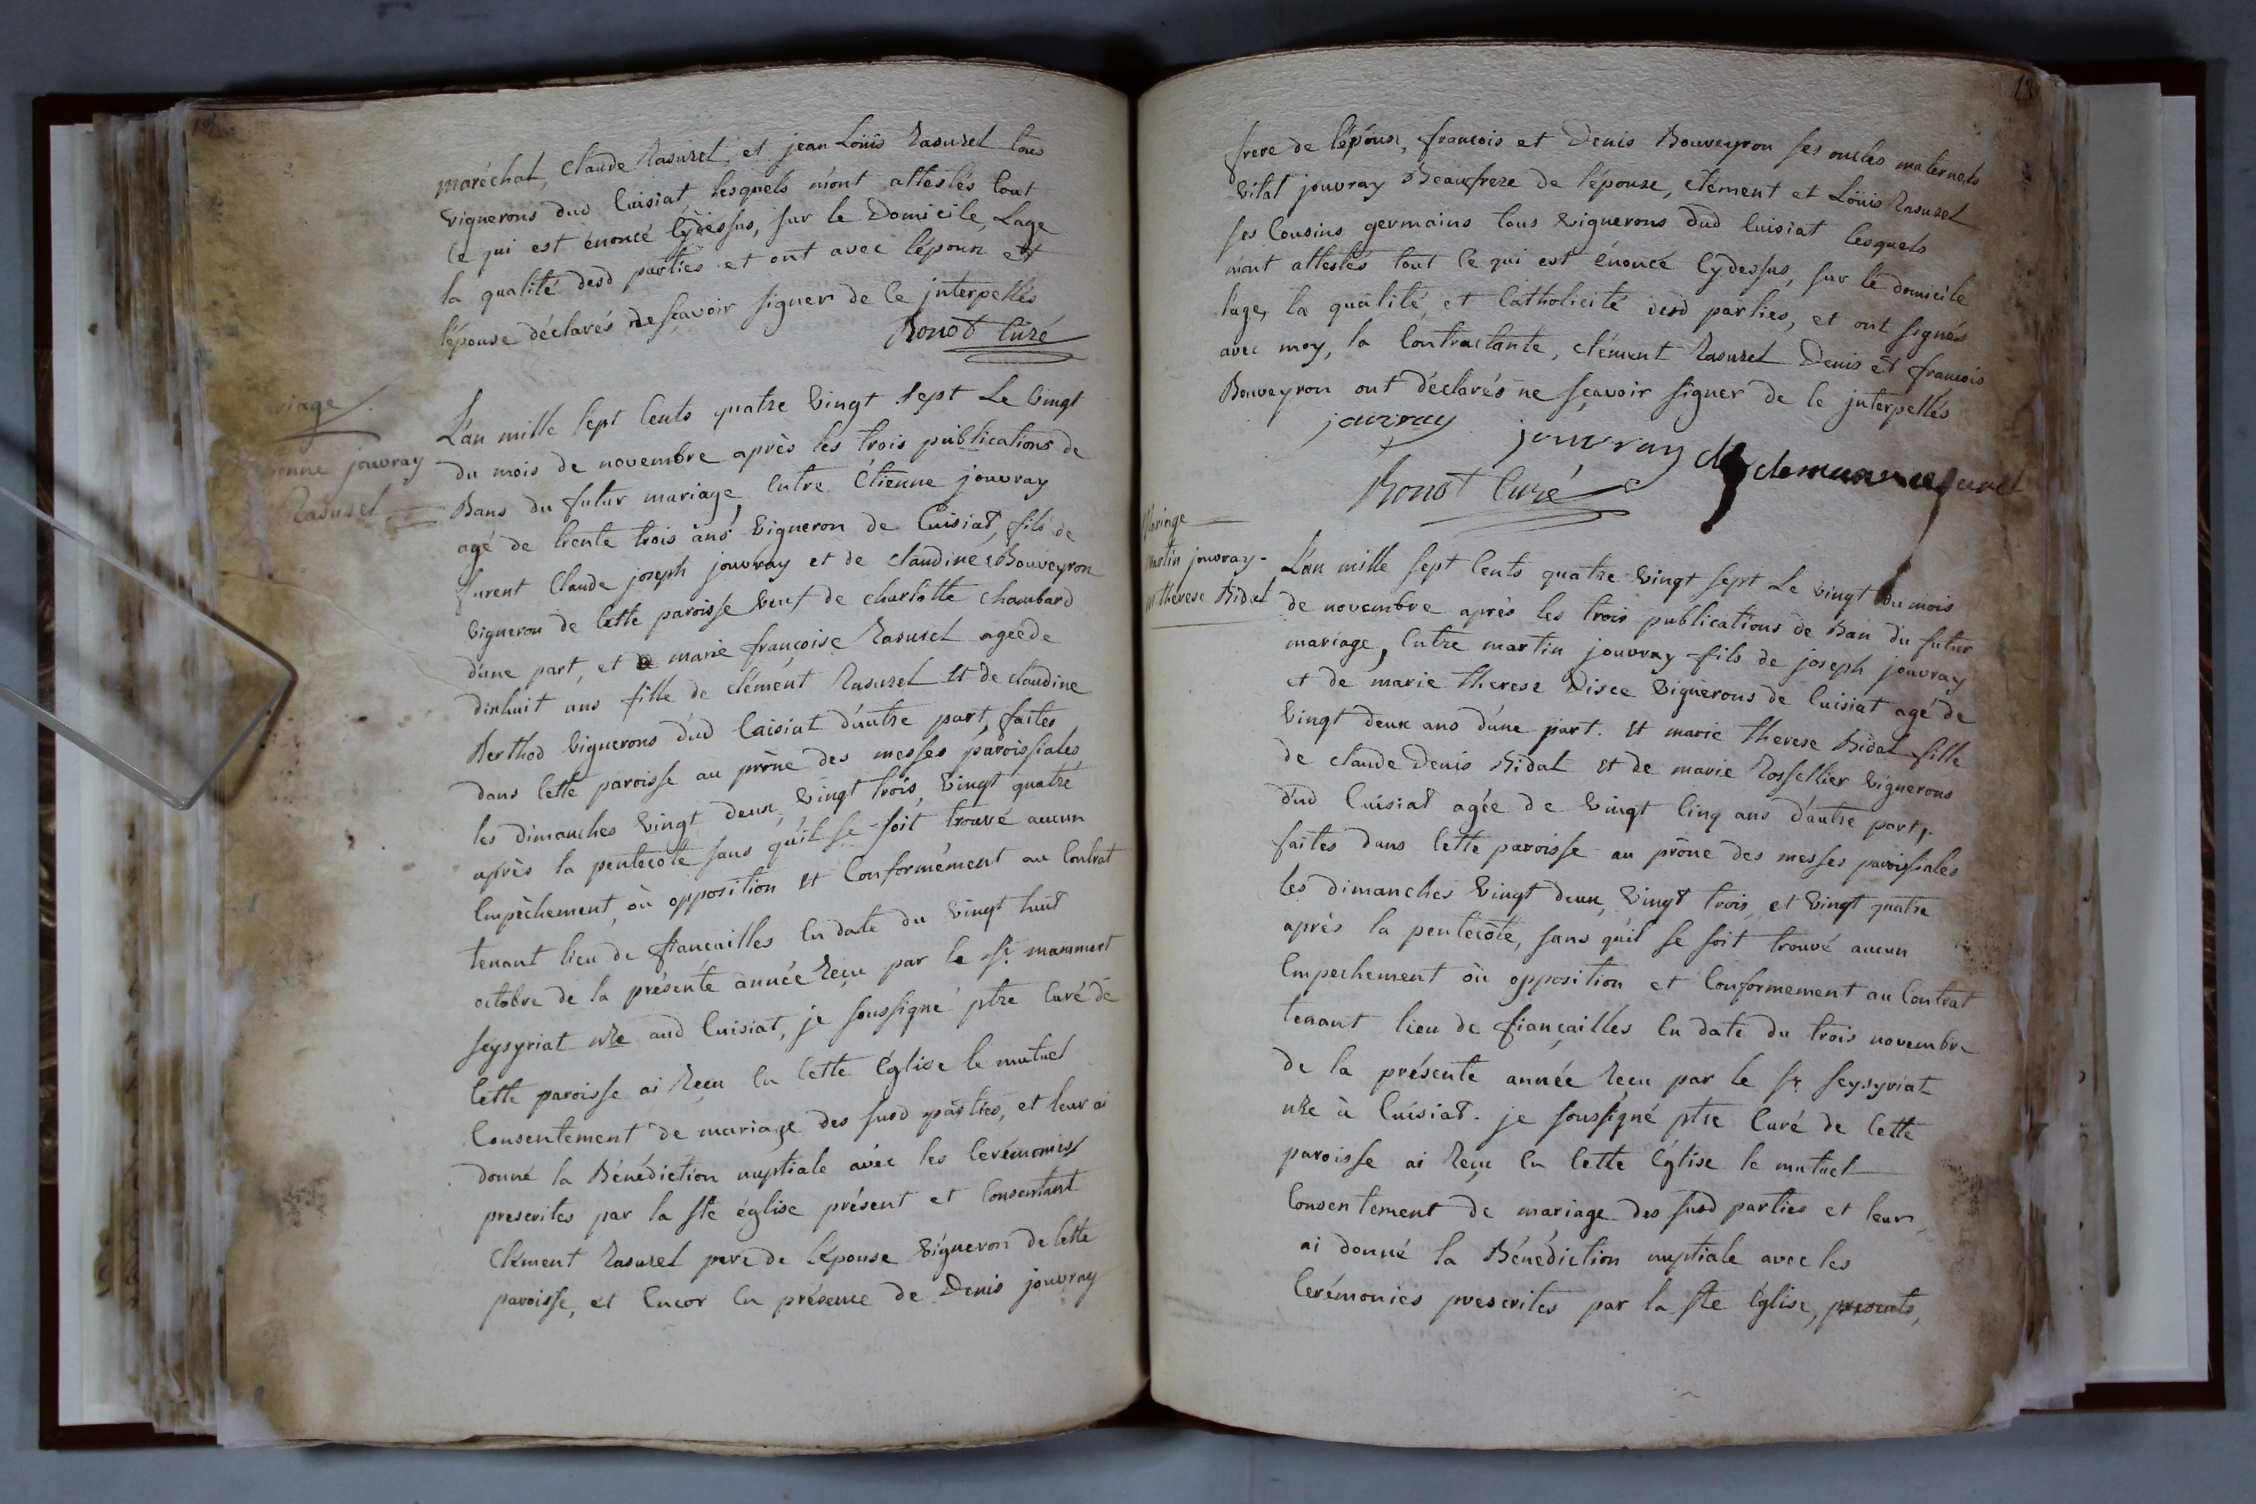 maréchal, Claude Rasurel, et jean Louis Rasurel tous
vignerons dud Cuisiat, lesquels m'ont attestés tout
ce qui est énoncé cydessus, sur le Domicile, Lage
la qualité desd parties et ont avec l'époux et
l'épouse déclarés ne sçavoir signer de ce interpellés
Bonot Curé
riage
ienne jouvray
Rasurel
L'an mille sept cents quatre vingt sept Le vingt
du mois de novembre après les trois publications de
Bans du futur mariage, entre Étienne jouvray
agé de trente trois ans vigneron de Cuisiat, fils de
furent Claude joseph jouvray et de claudine Bouveyron
vigneron de cette paroisse veuf de charlotte chambard
d'une part, et marie françoise Rasurel agée de
dixhuit ans fille de clément Rasurel et de claudine
Berthod vignerons dud Cuisiat d'autre part, faites
dans cette paroisse au prône des messes paroissiales
les dimanches vingt deux, vingt trois, vingt quatre
après la pentecôte sans qu'il se soit trouvé aucun
empêchement, où opposition et conformément au contrat
tenant lieu de fiançailles en date du vingt huit
octobre de la présente année Reçu par le Sr. mammert
seysyriat nre aud Cuisiat, je soussigné ptre curé de
cette paroisse ai Reçu en cette Église le mutuel
consentement de mariage des susd parties, et leur ai
donné la Bénédiction nuptiale avec les cerémonies
prescrites par la Ste église présent et consentant
Clément Rasurel pere de l'épouse vigneron de cette
paroisse, et encor en présence de Denis jouvray
18
frere de l'époux, francois et Denis Bouveyron ses oncles maternels
vital jouvray Beaufrere de l'épouse, clément et Loüis Rasurel
ses cousins germains tous vignerons dud Cuisiat lesquels
m'ont attestés tout ce qui est énoncé cydessus, sur le domicile
l'age, la qualité, et catholicité desd parties, et ont signés
avec moy, la contractante, clément Rasurel Denis et francois
Bouveyron ont déclarés ne sçavoir signer de ce interpellés
jouvray
jouvray
Bonot Curé
Mariage
Martin jouvray
Mie therese Bidal
L'an mille sept cents quatre vingt sept Le vingt du mois
de novembre après les trois publications de Ban du futur
mariage, entre martin jouvray fils de joseph jouvray
et de marie therese vignerons de Cuisiat agé de
vingt deux ans d'une part. et marie therese Bidal fille
de claude Denis Bidal et de marie Rossellier vignerons
dud Cuisiat agée de vingt cinq ans d'autre part,
faites dans cette paroisse au prône des messes paroissiales
les dimanches vingt deux, vingt trois, et vingt quatre
après la pentecôte, sans qu'il se soit trouvé aucun
empechement où opposition et conformement au contrat
tenant lieu de fiançailles en date du trois novembre
de la présente année Reçu par le Sr. seysyriat
nre à Cuisiat. je soussigné ptre Curé de cette
paroisse ai Reçu en cette Église le mutuel
consentement de mariage des susd parties et leur
ai donné la Bénédiction nuptiale avec les
cerémonies prescrites par la Ste Église, presents,